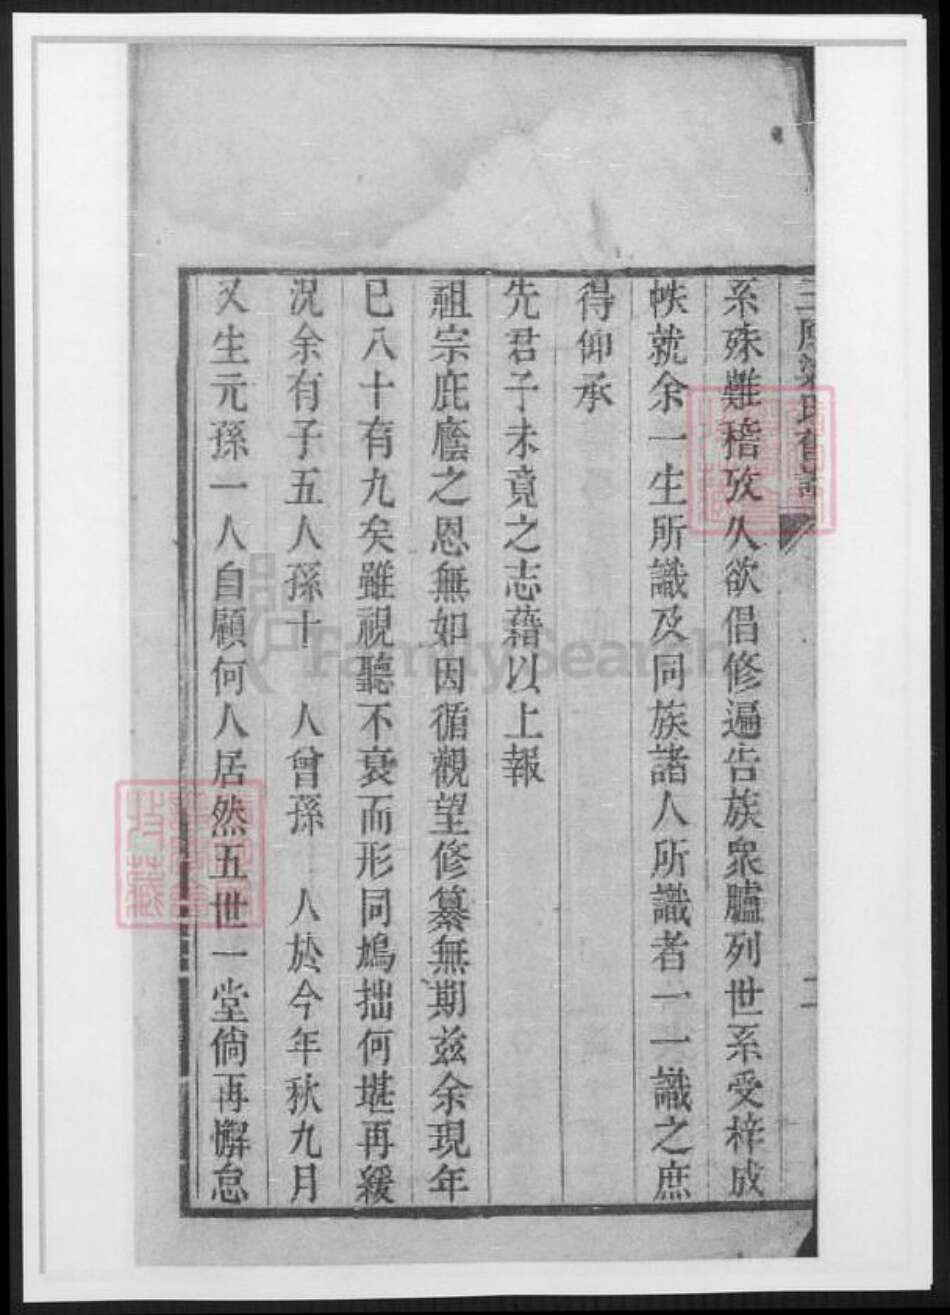 梁氏
二
系殊難稽攷久欲倡修遍告族眾臚列世系受梓成
帙就余一生所識及同族諸人所識者一一識之庶
得仰承
先君子未竟之志藉以上報
祖宗庇廕之恩無如因循觀望修纂無期茲余現年
已八十有九矣雖視聽不衰而形同鳩拙何堪再緩
況余有子五人孫十　人曾孫　人於今年秋九月
又生元孫一人自顧何人居然五世一堂倘再懈怠
FamilySearch